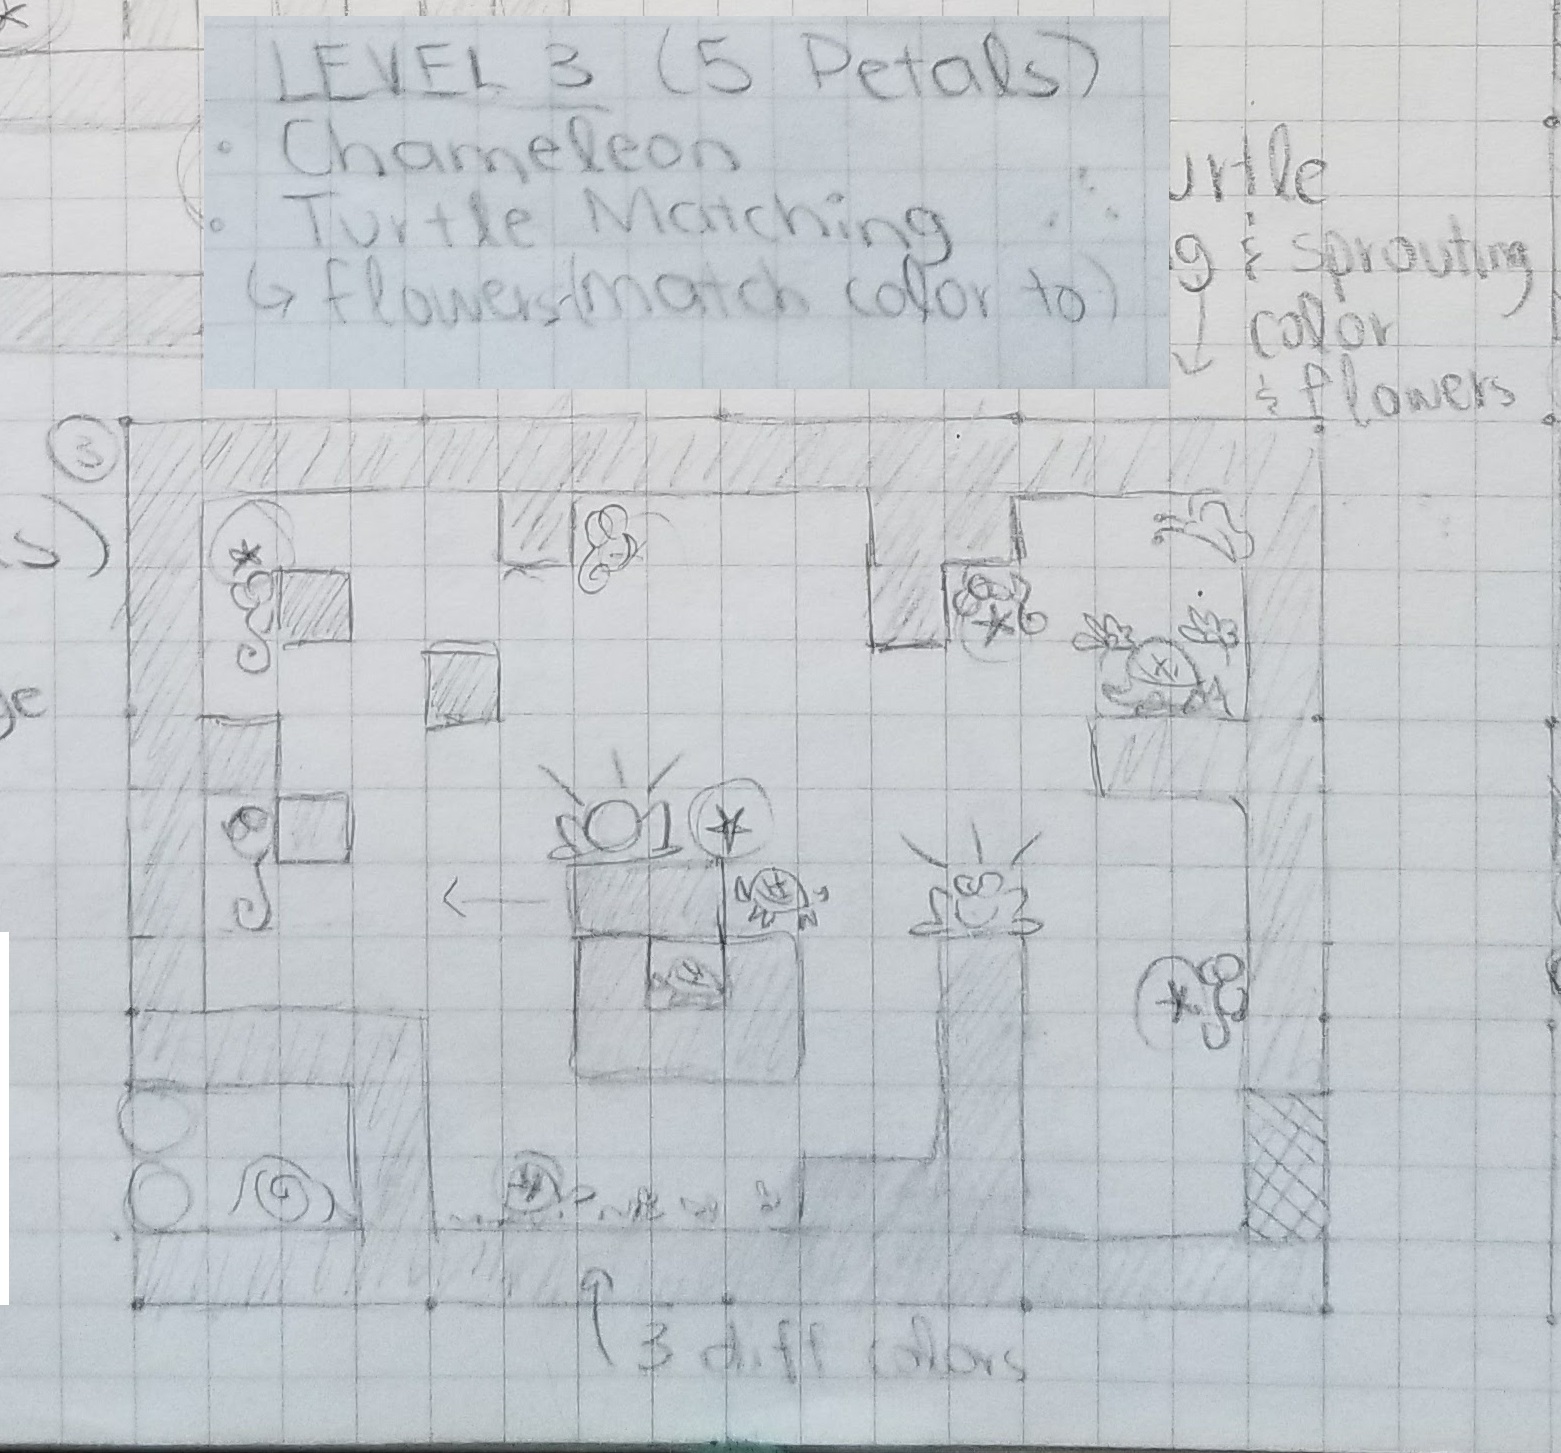 LEVEL 3 (5 Petals)
• Chameleon
• Turtle Matching
↳ flowers (match color to)
urtle
g & sprouting
↓ color
& flowers
③
s)
ge
3 diff colors